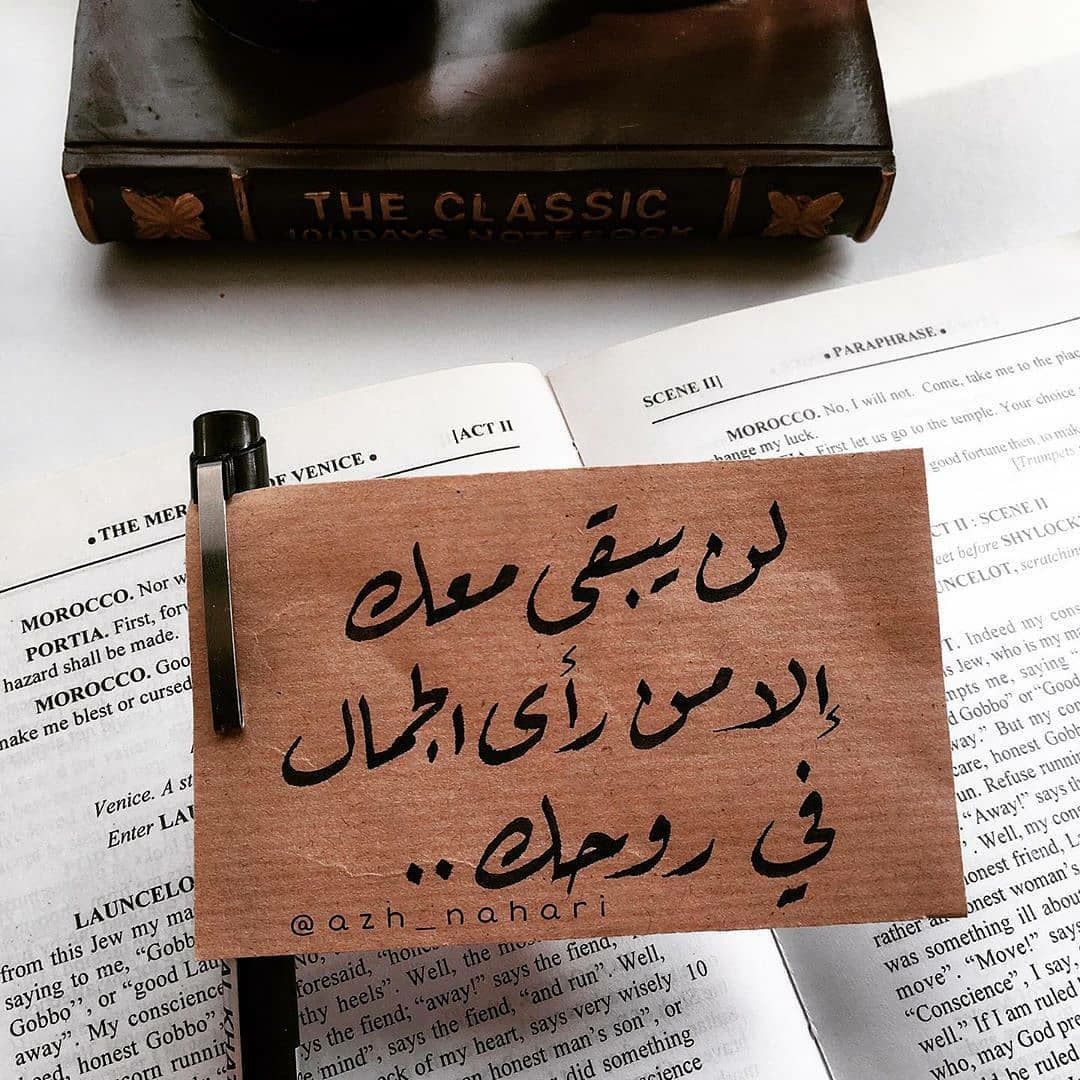 THE CLASSIC
100DAYS NOTEBOOK
• PARAPHRASE •
SCENE II]
MOROCCO. No, I will not. Come, take me to the plac
change my luck.
First let us go to the temple. Your choice
good fortune then, to mak
[Trumpets
CT II : SCENE II
eet before SHYLOCK
UNCELOT, scratchin
T. Indeed my cons
s Jew, who is my m
mpts me, saying "
d Gobbo" or "Good
way." But my con
care, honest Gobb
un. Refuse runnin
"Away!" says th
". Well, my cons
honest friend, La
rather an honest woman's
was something ill about
move". "Move!" says
"Conscience", I say,
well." If I am ruled
who, may God pre
d be ruled
[ACT II
• THE MER
OF VENICE •
MOROCCO. Nor w
PORTIA. First, forw
hazard shall be made.
MOROCCO. Goo
make me blest or cursed
Venice. A st
Enter LAU
LAUNCELO
from this Jew my ma
saying to me, "Gobb
Gobbo", or "good Lau
away". My conscience
eed, honest Gobbo"
corn runnin
لن يبقى معك
إلا من رأى الجمال
في روحك..
@azh_nahari
No,
foresaid, "hones
thy heels". Well, the mos
ys the fiend; "away!" says the fiend,
e mind", says the fiend, "and run". Well,
ck of my heart, says very wisely 10
an honest man's son", or
did something
science